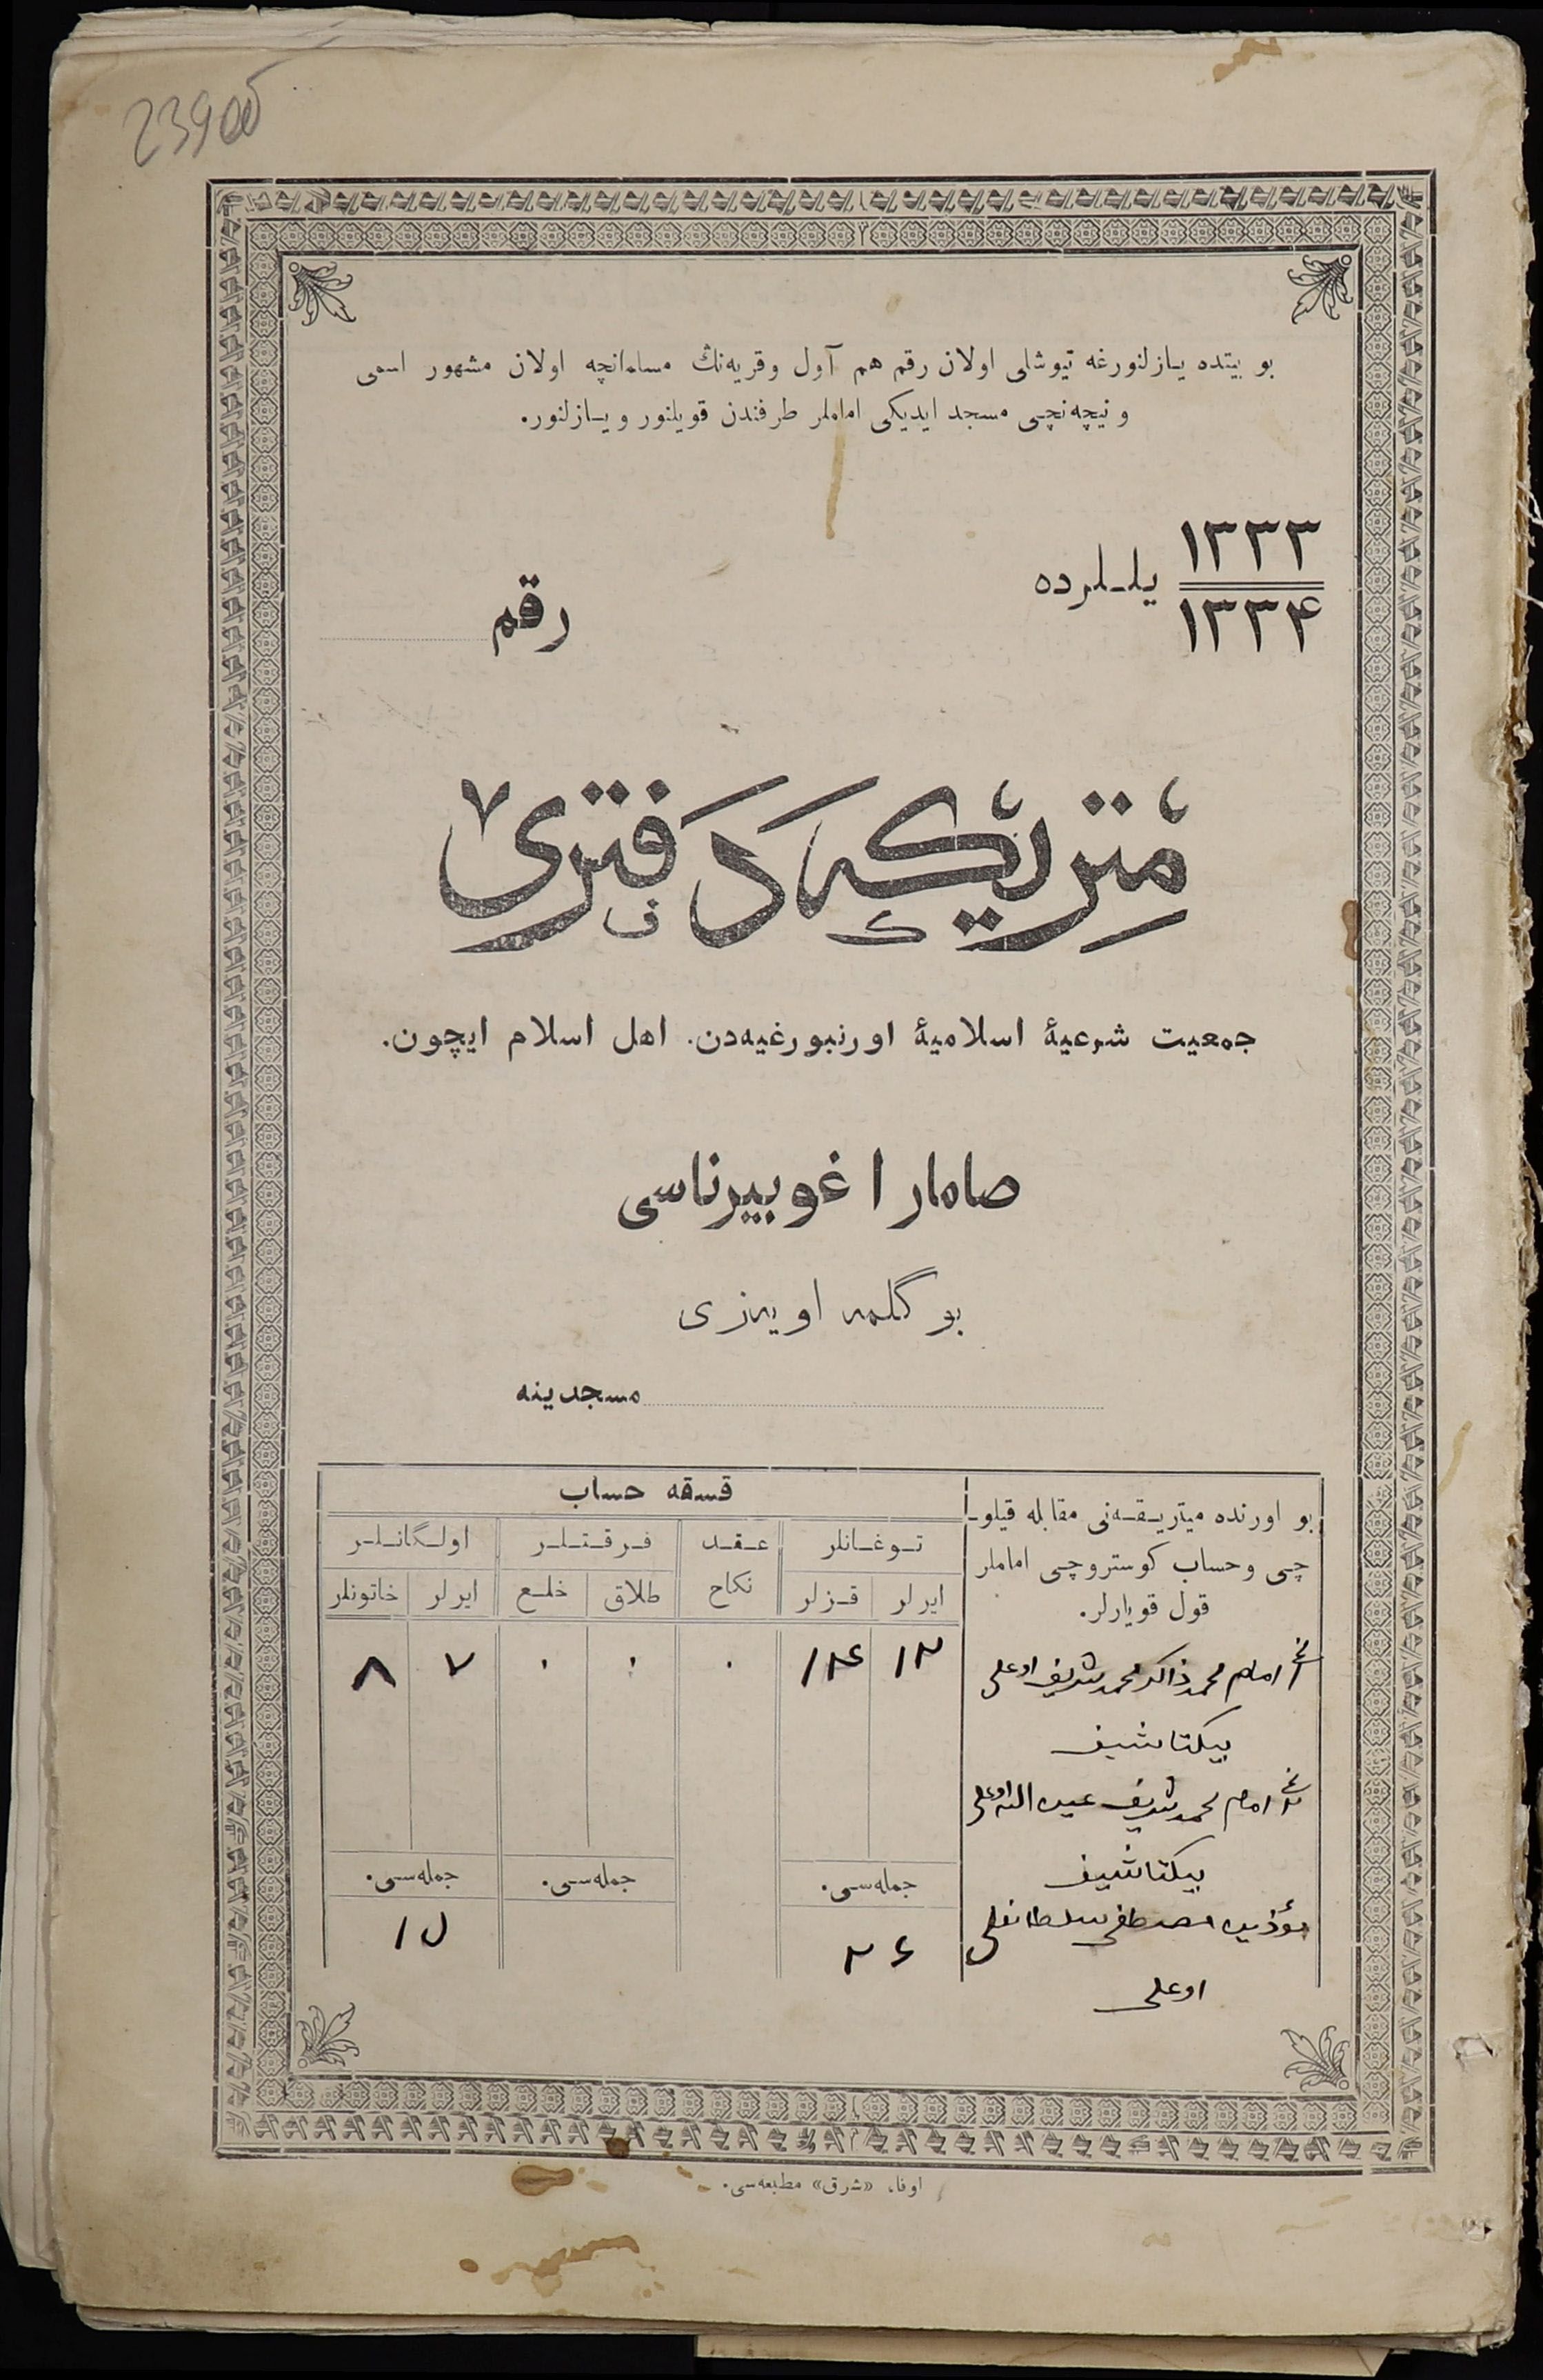 239об
بو بیتده یازلنورغه تیوشلی اولان رقم هم آول وقریه‌نڭ مسلمانچه اولان مشهور اسمی
ونیچه‌نچی مسجد ایدیکی اماملر طرفندن قویلنور ویازلنور.
۱۳۳۳
۱۳۳۴
یللرده
رقم
متریکه دفتری
جمعیت شرعیهٔ اسلامیهٔ اورنبورغیه‌دن. اهل اسلام ایچون.
صامارا غوبیرناسی
بوگلمه اویه‌زی
مسجدینه
بو اورنده میتریقه‌نی مقابله قیلو-
چی وحساب کوستروچی اماملر
قول قویارلر.
قسقه حساب
توغانلر
عقد
فرقتلر
اولگانلر
ایرلر
قزلر
نکاح
طلاق
خلع
ایرلر
خاتونلر
۱۲
۱۴
۰
۰
۰
۷
۸
امام محمد ذاکر محمد شریف اوغلی
بیکتاشیف
امام محمد شریف عبد الله اوغلی
بیکتاشیف
مؤذن مصطفی سلطانغلی
اوغلی
جمله‌سی.
جمله‌سی.
جمله‌سی.
۲۶
۱۵
اوفا، «شرق» مطبعه‌سی.